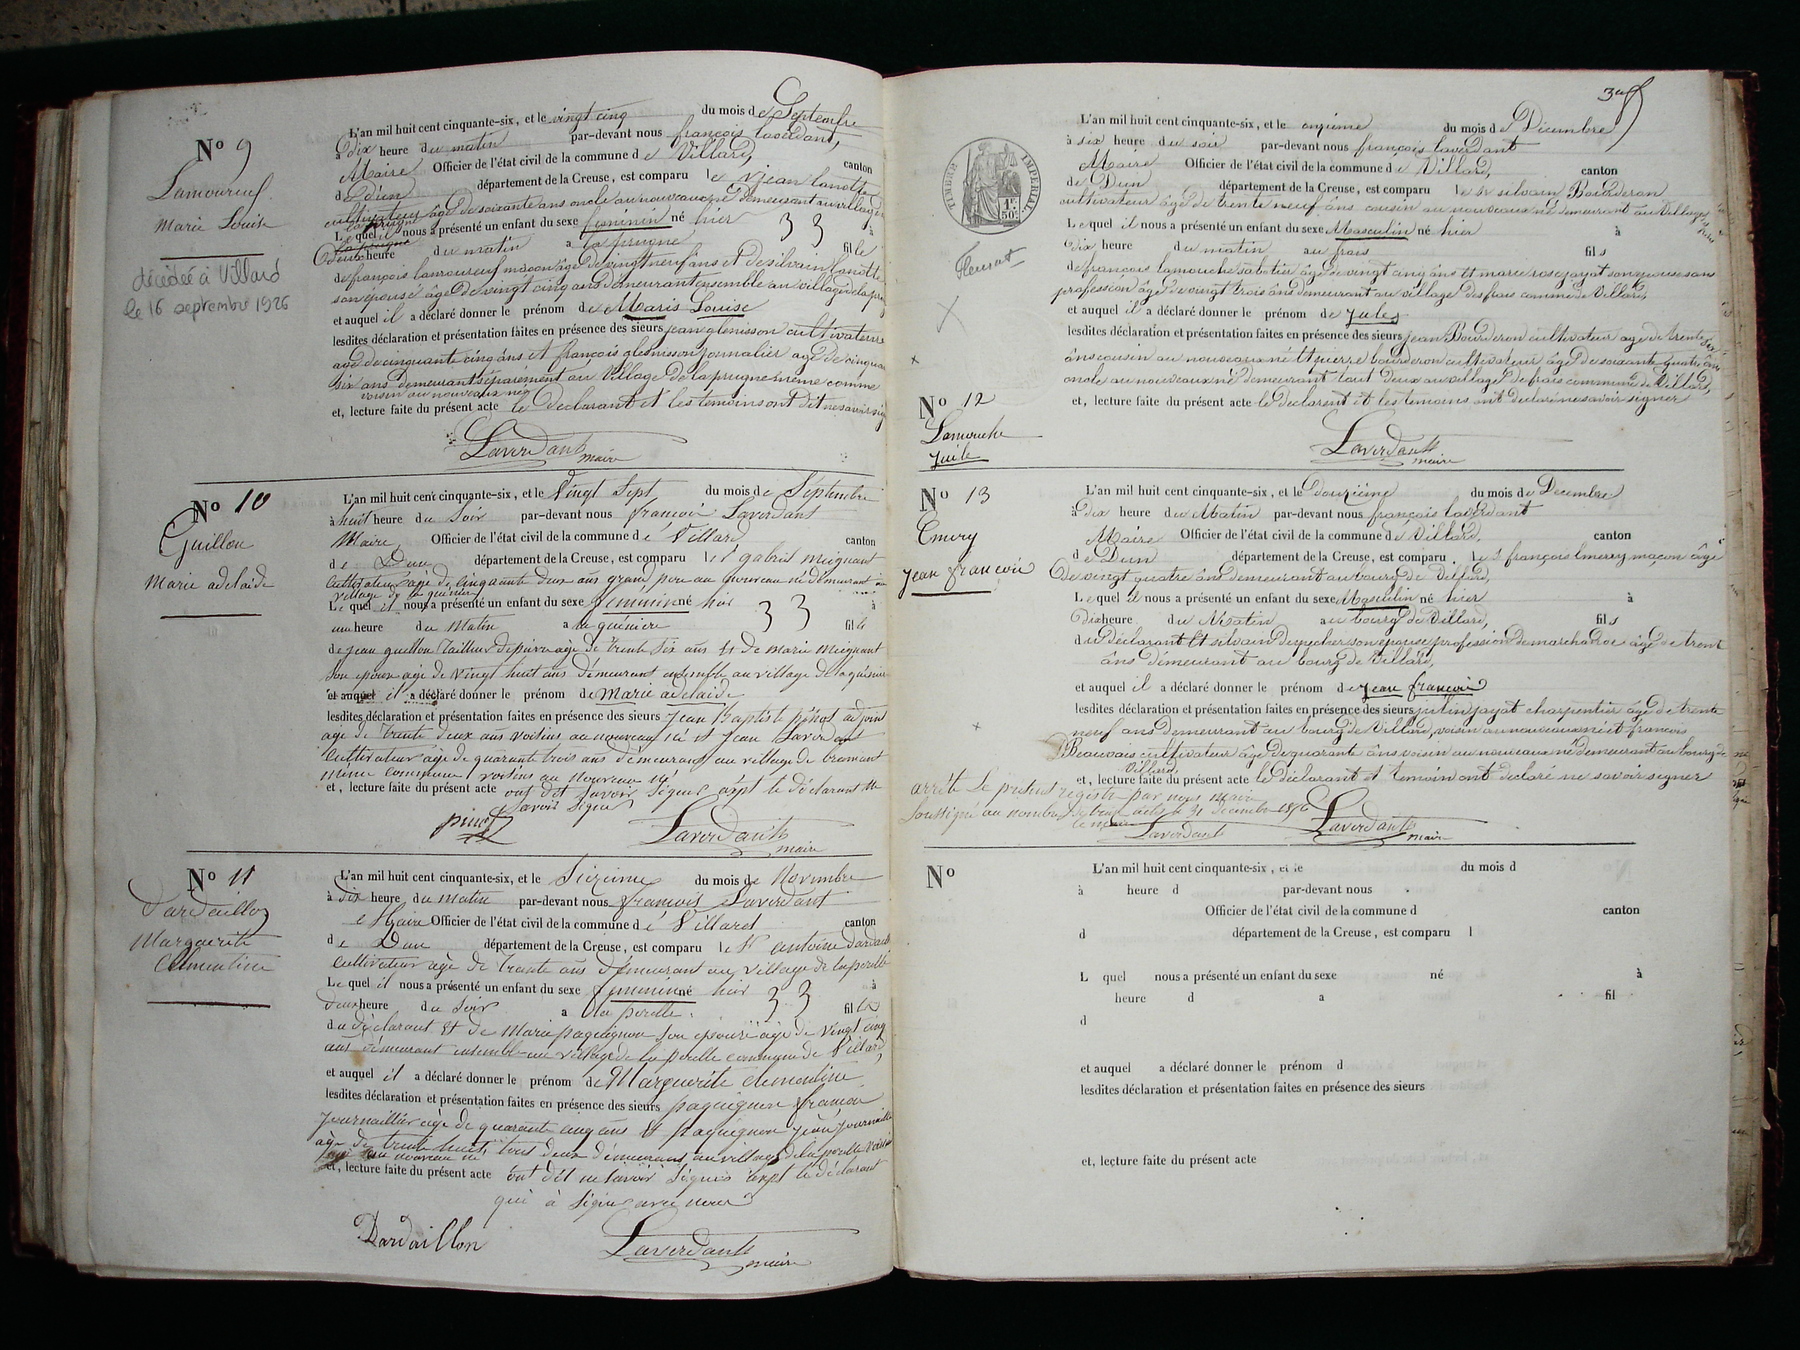 N° 9
Lamoureux
Marie Louise
décédée à Villard
le 16 septembre 1926
L'an mil huit cent cinquante-six, et le vingt cinq du mois de Septembre
à dix heure du matin par-devant nous françois laverdant,
Maire Officier de l'état civil de la commune de Villard, canton
de dun département de la Creuse, est comparu le s jean lanotte
cultivateur âgé de soixante ans oncle au nouveaux né demeurant au village
Lequel il nous a présenté un enfant du sexe feminin né hier à
heure du matin a la prugne fille
de françois lamoureux maçon âgé de vingt neuf ans et de silvain lanotte
son épouse âgé de vingt cinq ans demeurant ensemble au village de la prugne
et auquel il a déclaré donner le prénom de Maris Louise
lesdites déclaration et présentation faites en présence des sieurs jean glenisson cultivateur
agé de cinquante cinq âns et françois glenisson journalier age de cinquante
six ans demeurant séparément au Village de la prugne même comme
voisin au nouveaux né
et, lecture faite du présent acte le Declarant et les temoins ont dit ne savoir sig
Laverdant
maire
N° 10
Guillon
Marie adelaide
L'an mil huit cent cinquante-six, et le Vingt Sept du mois de Septembre
à huit heure du Soir par-devant nous francois Laverdant
Maire, Officier de l'état civil de la commune de Villard canton
de Dun département de la Creuse, est comparu le s gabriel meignant
cultivateur age de cinquante deux ans grand pere au nouveau né démeurant au
village de la guénier
Lequel il nous a présenté un enfant du sexe feminin né hier à
une heure du Matin a la guéniere fille
de jean guellon tailleur de pierre agé de trente six ans et de marie meignant
son epouse agé de vingt huit ans démeurant ensemble au village de la guénier
et auquel il a déclaré donner le prénom de Marie adelaide
lesdites déclaration et présentation faites en présence des sieurs Jean Baptiste pénot adjoint
age de trente deux ans voisins au nouveau né et Jean Laverdant
cultivateur agé de quarante trois ans démeurant au village de
même commune voisins au nouveau né
et, lecture faite du présent acte ont dit savoir Signer exept le déclarant
savoir signer
penot
Laverdant
maire
N° 11
Dardaillon
Marguerite
Clementine
L'an mil huit cent cinquante-six, et le Sixieme du mois de Novembre
à dix heure du matin par-devant nous francois Laverdant
Maire Officier de l'état civil de la commune de Villard canton
de Dun département de la Creuse, est comparu le S antoine dardaill
cultivateur agé de trente ans démeurant au village de la perelle
Lequel il nous a présenté un enfant du sexe feminin né hier à
deux heure du Soir a la perelle fille
du déclarant et de Marie paquignon son épouse âgé de vingt cinq
ans démeurant ensemble au village de la perelle commune de Villard,
et auquel il a déclaré donner le prénom de Marguerite clementine
lesdites déclaration et présentation faites en présence des sieurs paquignon francois
journaillier agé de quarante cinq ans et paquignon jean journaillier
age de trente huit, tous deux démeurans au village de la perelle
au nouveau né
et, lecture faite du présent acte ont dit ne savoir Signer exept le déclarant
qui à Signé avec nous
Dardaillon
Laverdant
maire
TIMBRE IMPERIAL
1F.
50c.
L'an mil huit cent cinquante-six, et le onzieme du mois de Décembre
à six heure du soir par-devant nous françois laverdant
Maire Officier de l'état civil de la commune de Villard, canton
de Dun département de la Creuse, est comparu le s silvain Bourderon
cultivateur âgé de trente neuf âns cousin au nouveaux né démeurant au Village
Lequel il nous a présenté un enfant du sexe Masculin né hier à
Dix heure du matin au frais fils
de françois lamouche sabotier âgé de vingt cinq âns et marie rose jayat son epouse sans
profession âgé de vingt trois âns demeurant au village des frais comme de Villard,
et auquel il a déclaré donner le prénom de Jules
lesdites déclaration et présentation faites en présence des sieurs jean Bourderon cultivateur âgé de trente six
âns cousin au nouveau né et pierre bourderon cultivateur âgé de soixante quatre âns
oncle au nouveaux né demeurant tout deux au village de frais commune de Villard,
et, lecture faite du présent acte le declarent et les temoins ont declaré ne savoir signer
N° 12
Lamouche
Jule
Laverdant
maire
N° 13
Emery
Jean francois
L'an mil huit cent cinquante-six, et le Douzieme du mois de Decembre
à dix heure du Matin par-devant nous françois laverdant
Maire Officier de l'état civil de la commune de Villard, canton
de Dun département de la Creuse, est comparu le s françois Emery maçon âgé
De vingt quatre âns demeurant au bourg de Villard,
Lequel il nous a présenté un enfant du sexe Masculin né hier à
Dix heure du Matin au bourg de Villard, fils
du déclarant et silvain son epouse profession de marchande âgé de trent
âns démeurant au bourg de Villard,
et auquel il a déclaré donner le prénom de Jean francois
lesdites déclaration et présentation faites en présence des sieurs justin jayat charpentier âgé de trente
neuf ans demeurant au bourg de Villard, voisin au nouveaux né et francois
Beauvais cultivateur âgé de quarante âns voisin au nouveaux né demeurant au bourg de
Villard
et, lecture faite du présent acte le déclarant et temoin ont declaré ne savoir signer
arrêté le présent registre par nous maire
soussigné au nombre de treize actes le 31 décembre 1856
le maire Laverdant
Laverdant
maire
N°
L'an mil huit cent cinquante-six, et le du mois d
à heure d par-devant nous
Officier de l'état civil de la commune d canton
d département de la Creuse, est comparu l
L quel nous a présenté un enfant du sexe né à
heure d a fil
d
et auquel a déclaré donner le prénom d
lesdites déclaration et présentation faites en présence des sieurs
et, lecture faite du présent acte